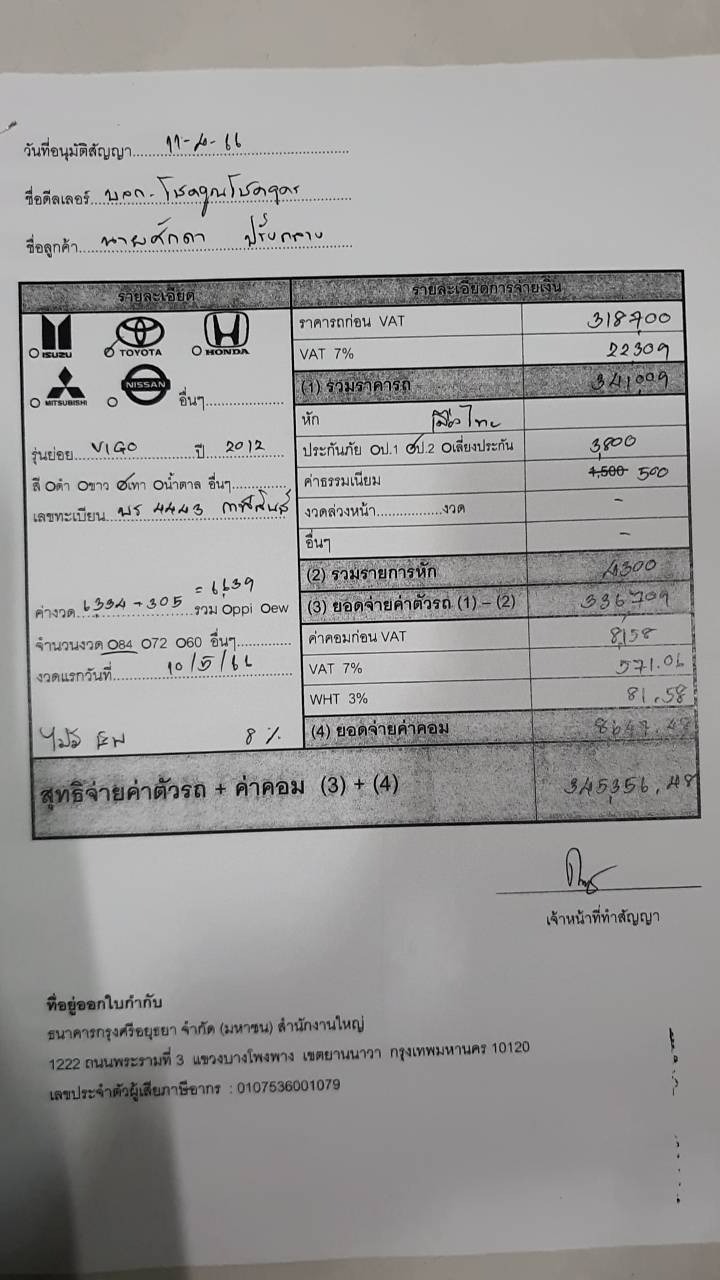 วันที่อนุมัติสัญญา 11-4-66
ชื่อดีลเลอร์ บจก. โชคคูณโชคอุดร
ชื่อลูกค้า นายศักดา ปรังกลาง
รายละเอียด
รายละเอียดการจ่ายเงิน
ISUZU TOYOTA HONDA
MITSUBISHI NISSAN อื่นๆ
รุ่นย่อย VIGO ปี 2012
สี Oดำ Oขาว Oเทา Oน้ำตาล อื่นๆ
เลขทะเบียน 4443 กาฬสินธุ์
= 6,639
ค่างวด 6334 + 305 รวม Oppi Oew
จำนวนงวด O84 O72 O60 อื่นๆ
งวดแรกวันที่ 10/5/66
8 %
ราคารถก่อน VAT 318,700
VAT 7% 22309
(1) รวมราคารถ 341,009
หัก เมืองไทย
ประกันภัย Oป.1 Oป.2 Oเลี่ยงประกัน 3,800
ค่าธรรมเนียม 4,500 500
งวดล่วงหน้า งวด -
อื่นๆ -
(2) รวมรายการหัก 4300
(3) ยอดจ่ายค่าตัวรถ (1) – (2) 336,709
ค่าคอมก่อน VAT 8,158
VAT 7% 571.06
WHT 3% 81.58
(4) ยอดจ่ายค่าคอม 8647.48
สุทธิจ่ายค่าตัวรถ + ค่าคอม (3) + (4) 345,356.48
เจ้าหน้าที่ทำสัญญา
ที่อยู่ออกใบกำกับ
ธนาคารกรุงศรีอยุธยา จำกัด (มหาชน) สำนักงานใหญ่
1222 ถนนพระรามที่ 3 แขวงบางโพงพาง เขตยานนาวา กรุงเทพมหานคร 10120
เลขประจำตัวผู้เสียภาษีอากร : 0107536001079